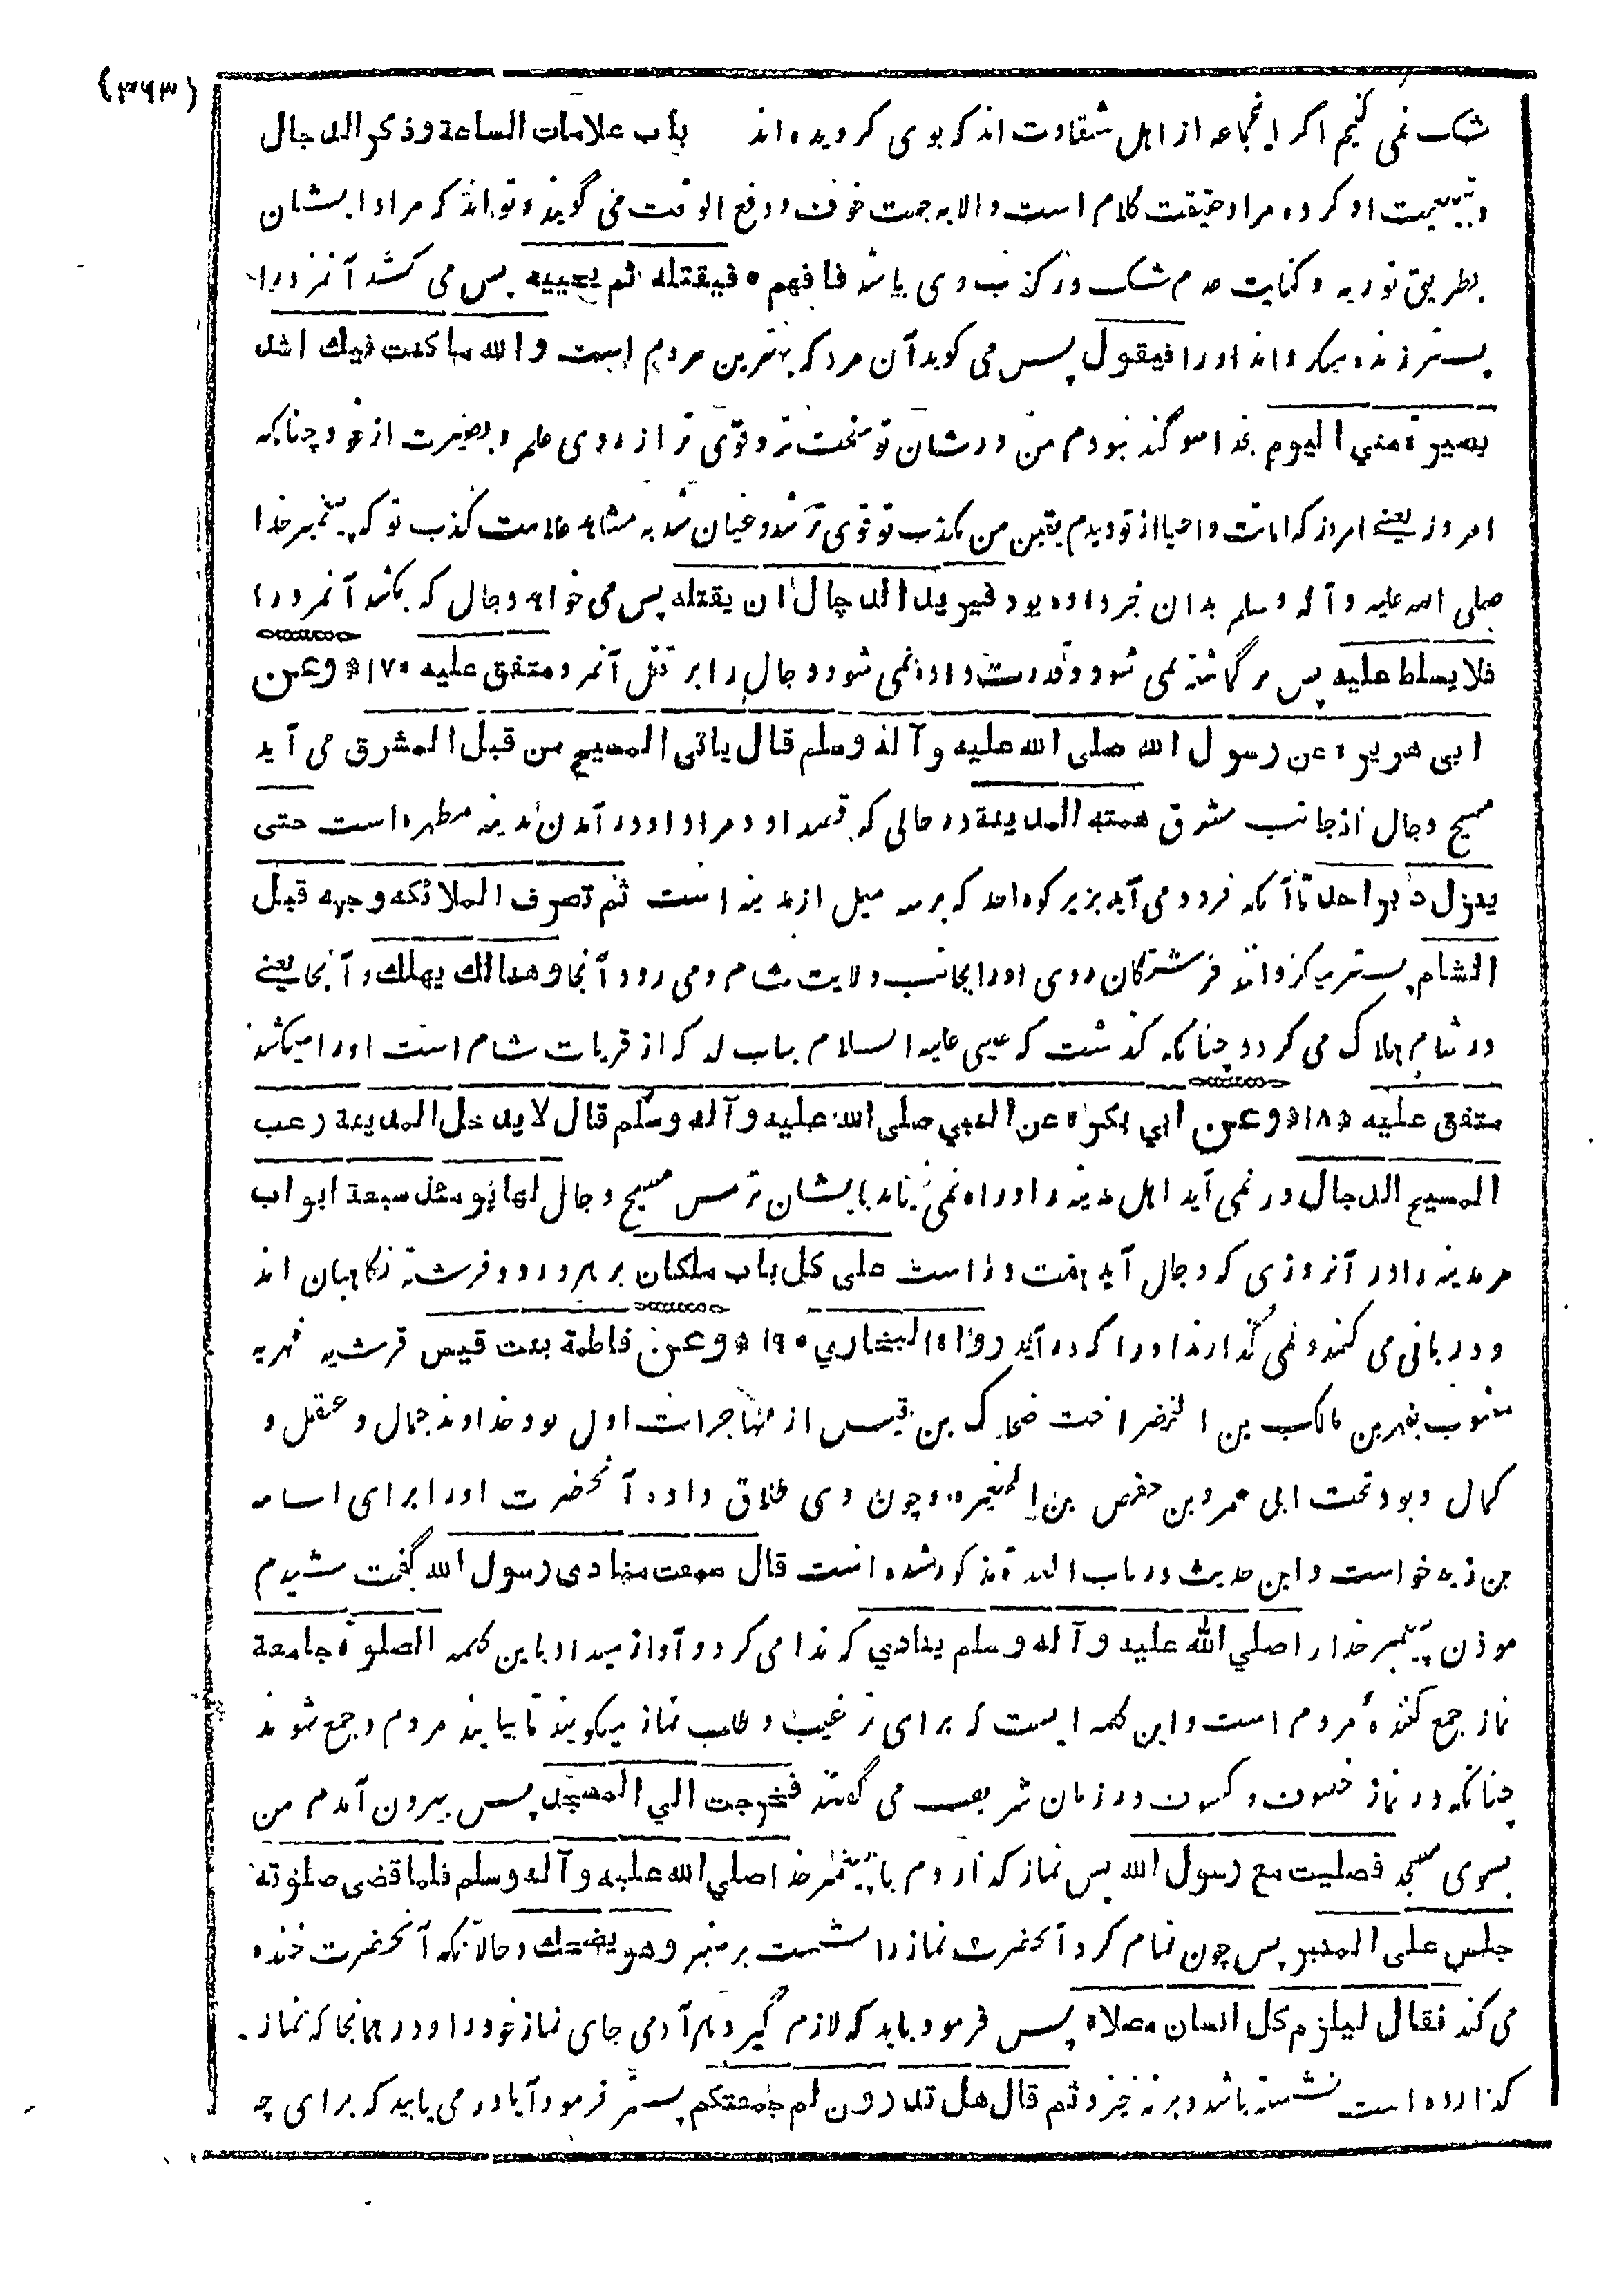 (۳۶۳)
شک نمی کنیم اگر اینجماعه از اهل شقاوت اند که بوی گرویده اند باب علامات الساعة وذکر الدجال
و تبعیت او کرده مراد حقیقت کلام است والا به جهت خوف و دفع الوقت می گویند و تواند که مراد ایشان
بطریق توریه و کنایت عدم شک در کذب وی باشد فافهم ٥ فیقتله ثم یحییه پس می کشد آنمرد را
پستر زنده میگرداند اورا فیقول پس می گوید آن مرد که بهترین مردم است والله ما کنت فیك اشد
بصیرة مني الیوم بخدا سوگند نبودم من در شان تو سخت تر و قوی تر از روی علم و بصیرت از خود چنانکه
امروز یعنے امروز که اماتت و احیا از تو دیدم یقین من بکذب تو قوی تر شد و عیان شد به مشاهده علامت کذب تو که پیغمبر خدا
صلی الله علیه و آله وسلم بدان خبر داده بود فیرید الدجال ان یقتله پس می خواهد دجال که بکشد آنمرد را
فلا یسلط علیه پس برگماشته نمی شود و قدرت داده نمی شود دجال را بر قتل آنمرد متفق علیه ۱۷٥ * وعن
ابی هریرة عن رسول الله صلی الله علیه و آله وسلم قال یاتی المسیح من قبل المشرق می آید
مسیح دجال از جانب مشرق همته المدینة در حالی که قصد او و مراد او در آمدن مدینه مطهره است حتی
ینزل دبر احد تا آنکه فرود می آید بزیر کوه احد که بر سه میل از مدینه است ثم تصرف الملائکه وجهه قبل
الشام پستر میگردانند فرشتگان روی اورا بجانب ولایت شام و می رود آنجا وهنالك یهلك و آنجا یعنے
در شام هلاک می گردد چنانکه گذشت که عیسی علیه السلام بباب لد که از قریات شام است اورا میکشد
متفق علیه * ۱۸ * وعن ابي بکرة عن النبي صلی الله علیه و آله وسلم قال لا یدخل المدینة رعب
المسیح الدجال در نمی آید اهل مدینه را و راه نمی یابد بایشان ترس مسیح دجال لها یومئذ سبعة ابواب
مر مدینه را در آنروزی که دجال آید هفت در است علی کل باب ملکان بر هر در دو فرشته نگاهبان اند
و دربانی می کنند و نمی گذارند اورا که در آید رواه البخاري ٥ ۱۹ * وعن فاطمة بنت قیس قرشیه فهریه
منسوب بفهر بن مالک بن النضر اخت ضحاک بن قیس از مهاجرات اول بود خداوند جمال و عقل و
کمال و بود تحت ابی عمرو بن حفص بن المغیره و چون وی طلاق داد آنحضرت اورا برای اسامه
بن زید خواست و این حدیث در باب العدة مذکور شده است قال سمعت منادی رسول الله گفت شنیدم
موذن پیغمبر خدا را صلي الله علیه و آله وسلم ینادي که ندا می کرد و آواز میداد باین کلمه الصلوة جامعة
نماز جمع کننده مردم است و این کلمه ایست که برای ترغیب و طلب نماز میگویند تا بیایند مردم و جمع شوند
چنانکه در نماز خسوف و کسوف در زمان شریف می گفتند فخرجت الي المسجد پس بیرون آمدم من
بسوی مسجد فصلیت مع رسول الله پس نماز گذاردم با پیغمبر خدا صلي الله علیه و آله وسلم فلما قضی صلوته
جلس علی المنبر پس چون تمام کرد آنحضرت نماز را نشست بر منبر وهو یضحك و حال آنکه آنحضرت خنده
می کند فقال لیلزم کل انسان مصلاه پس فرمود باید که لازم گیرد هر آدمی جای نماز خود را و در همانجا که نماز
گذارده است نشسته باشد و برنه خیزد ثم قال هل تدرون لم جمعتکم پستر فرمود آیا در می یابید که برای چه